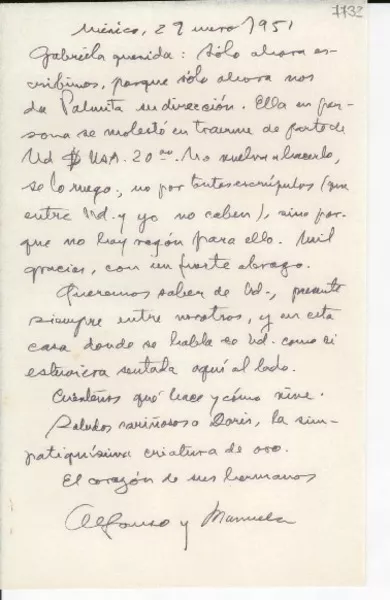 1732
México, 29 enero 1951
Gabriela querida: Sólo ahora es-
cribimos, porque sólo ahora nos
da Palmita su dirección. Ella en per-
sona se molestó en traerme de parte de
Ud $ USA. 20.00. No vuelva a hacerlo,
se lo ruego, no por tontos escrúpulos (que
entre Ud. y yo no caben), sino por-
que no hay razón para ello. Mil
gracias, con un fuerte abrazo.
Queremos saber de Ud., presente
siempre entre nosotros, y en esta
casa donde se habla de Ud. como si
estuviera sentada aquí al lado.
Cuéntenos qué hace y cómo vive.
Saludos cariñosos a Doris, la sim-
patiquísima criatura de oro.
El corazón de sus hermanos
Alfonso y Manuela